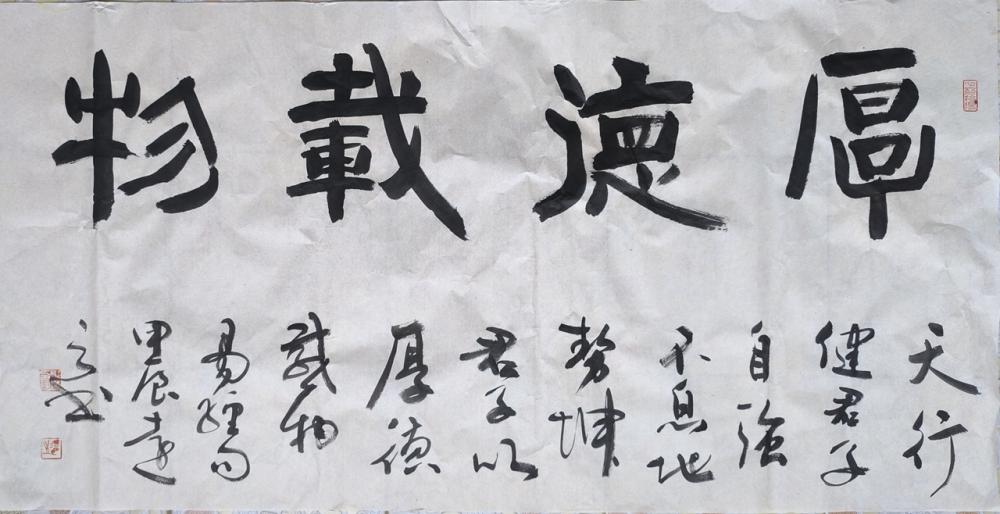 厚德載物
天行
健君子
自強
不息地
勢坤
君子以
厚德
載物
易經句
甲辰
之書